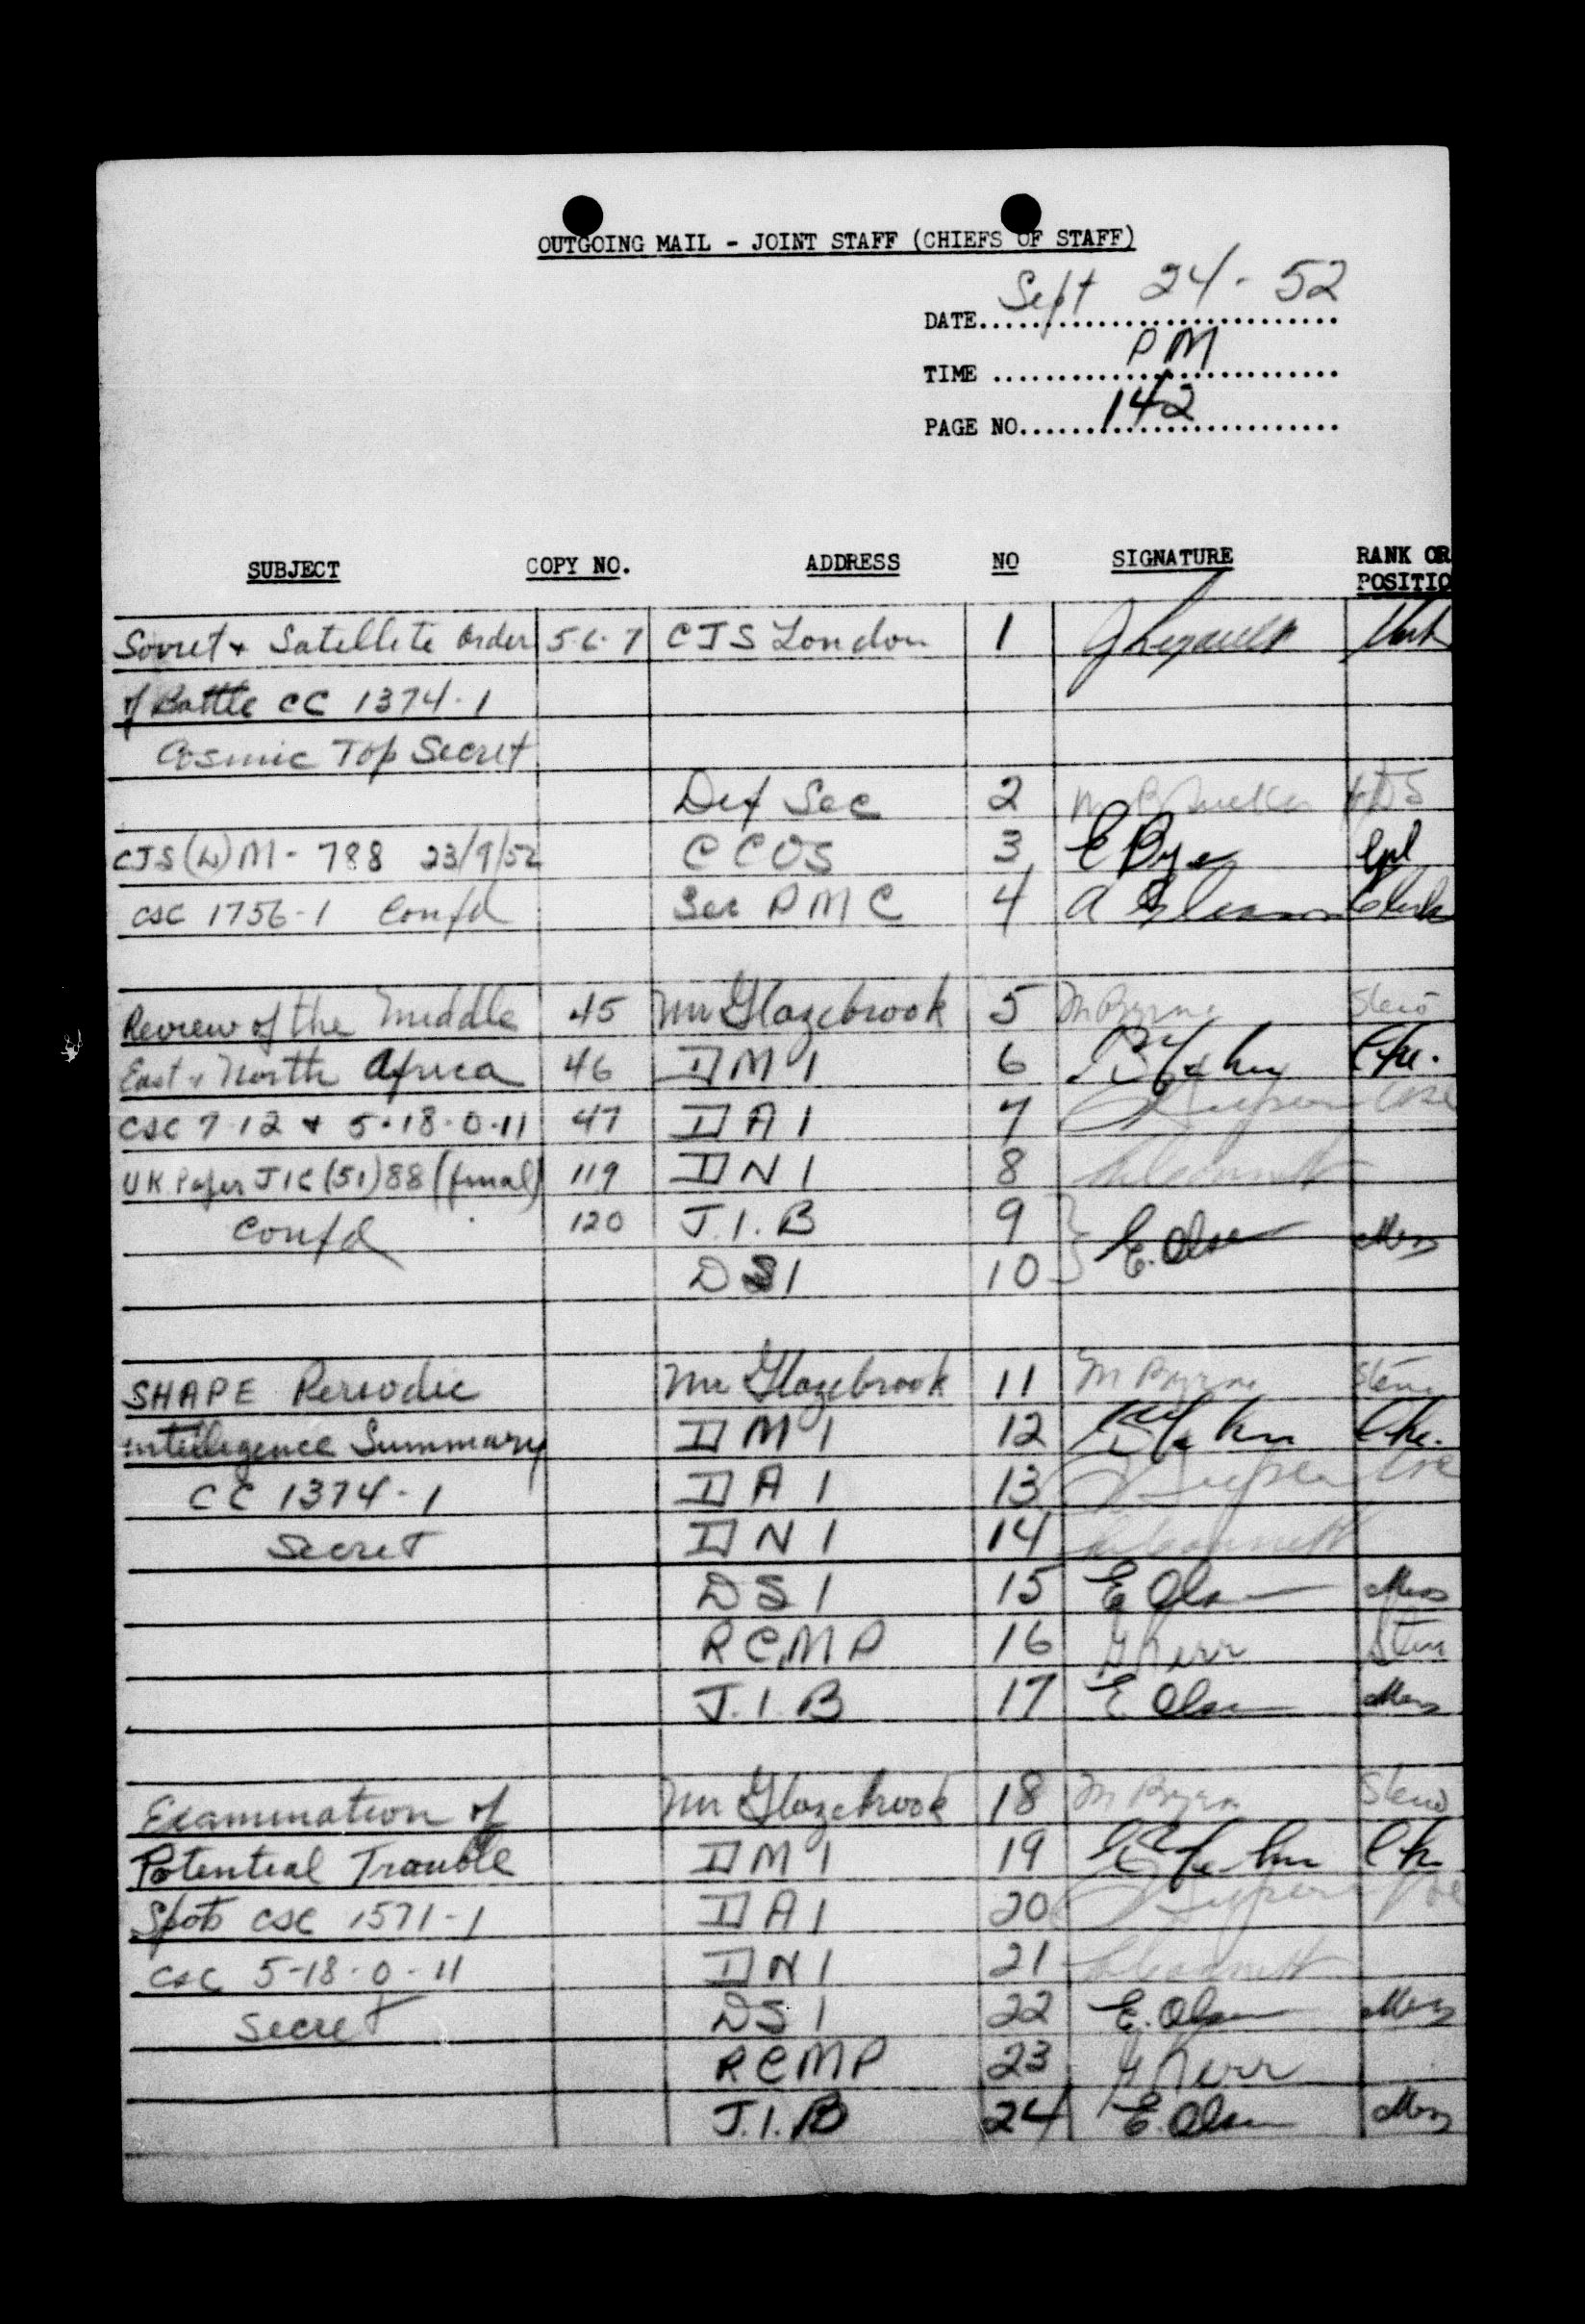 OUTGOING MAIL - JOINT STAFF (CHIEFS OF STAFF)
DATE Sept 24 - 52
TIME PM
PAGE NO. 142
SUBJECT COPY NO. ADDRESS NO SIGNATURE RANK OR
POSITIO
Soviet + Satellite Order 5-6-7 CJS London 1
of Battle CC 1374-1
Cosmic Top Secret
Def Sec 2
CJS(L)M - 788 23/9/52 CCOS 3 E Bye Cpl
CSC 1756-1 Confd Sec PMC 4 A Clerk
Review of the Middle 45 Mr Glazebrook 5 M Byrne Steno
East & North Africa 46 DMI 6
CSC 7-12 & 5-18-0-11 47 DAI 7
UK Paper JIC(51)88 (final) 119 DNI 8
Confd 120 J.I.B 9 E. Olsen Mess
DSI 10
SHAPE Periodic Mr Glazebrook 11 M Byrne Steno
Intelligence Summary DMI 12
CC 1374-1 DAI 13
Secret DNI 14
DSI 15 E Olsen Mess
RCMP 16 G Kerr Sten
J.I.B 17 E Olsen Mess
Examination of Mr Glazebrook 18 M Byrne Steno
Potential Trouble DMI 19
Spots CSC 1571-1 DAI 20
CSC 5-18-0-11 DNI 21
Secret DSI 22 E. Olsen Mess
RCMP 23 G Kerr
J.I.B 24 E. Olsen Mess